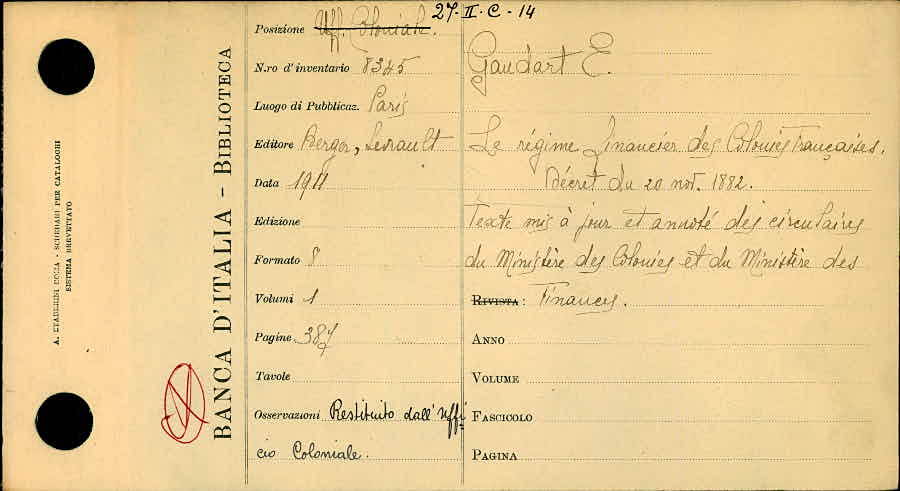 27-II-C-14
Posizione Uff. Coloniale.
N.ro d'inventario 8345
Luogo di Pubblicaz. Paris
Editore Berger, Levrault
Data 1911
Edizione
Formato 8
Volumi 1
Pagine 387
Tavole
Osservazioni Restituito dall'Uffi
cio Coloniale.
Gaudart E.
Le régime financier des Colonies Françaises.
Décret du 20 nov. 1882.
Texte mis à jour et annoté des circulaires
du Ministère des Colonies et du Ministère des
RIVISTA: Finances.
ANNO
VOLUME
FASCICOLO
PAGINA
BANCA D'ITALIA - BIBLIOTECA
SCHEDARI PER CATALOGHI
SISTEMA BREVETTATO